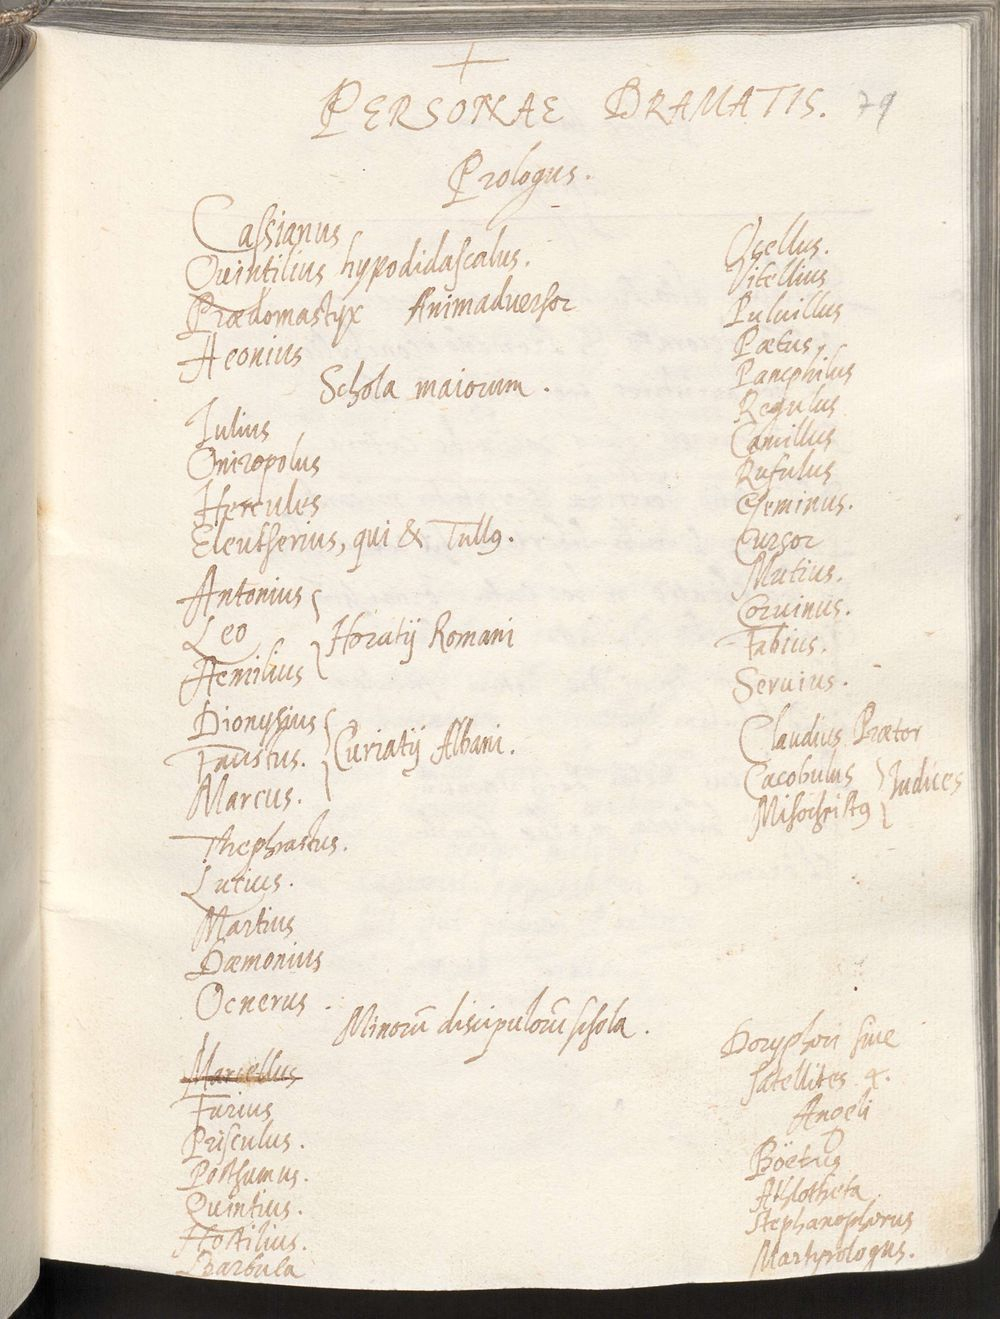 +
PERSONAE DRAMATIS. 79
Prologus.
Cassianus
Quintilius hypodidascalus.
Prædomastyx Animaduersor
Aeonius
Schola maiorum.
Iulius
Oniropolus
Hercules
Eleutherius, qui & Tullꝯ.
Antonius
Leo
Aemilius
Horatij Romani
Dionysius
Faustus.
Marcus.
Curiatij Albani.
Thephrastus.
Lucius.
Martius
Dæmonius
Ocnerus.
Minorū discipulorū schola.
Marcellus
Furius
Prisculus.
Posthumus.
Quintius.
Hostilius.
Barbula
Ocellus.
Vitellius
Puluillus
Pætus,
Pamphilus
Regulus
Camillus
Rufulus
Geminus.
Cursor
Mutius.
Coruinus.
Fabius.
Seruius.
Claudius Prætor
Cacobulus
Misochristꝯ
Iudices
Doryphori siue
satellites 4.
Angeli
Boëtus
Athlotheta
Stephanophorus
Martyrologus.